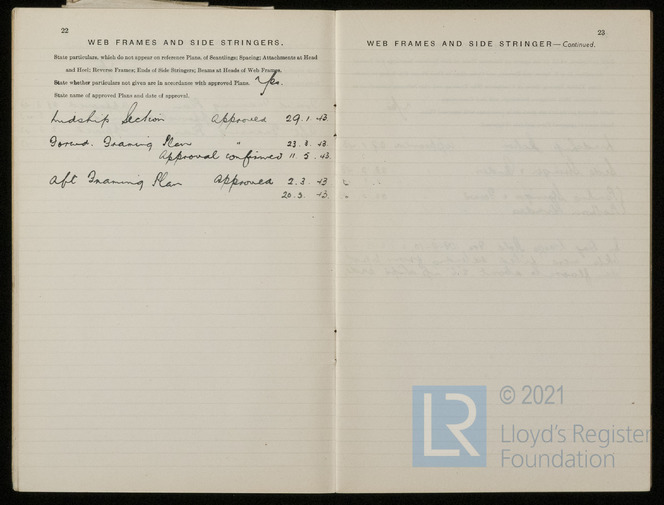 22
WEB FRAMES AND SIDE STRINGERS.
State particulars, which do not appear on reference Plans, of Scantlings; Spacing; Attachments at Head
and Heel; Reverse Frames; Ends of Side Stringers; Beams at Heads of Web Frames.
State whether particulars not given are in accordance with approved Plans. Yes.
State name of approved Plans and date of approval.
Midship Section Approved 29.1.43.
Forwd. Framing Plan " 23.3.43.
Approval confirmed 11.5.43.
Aft Framing Plan Approved 2.3.43
20.3.43.
23
WEB FRAMES AND SIDE STRINGER—Continued.
LR © 2021
Lloyd's Register
Foundation